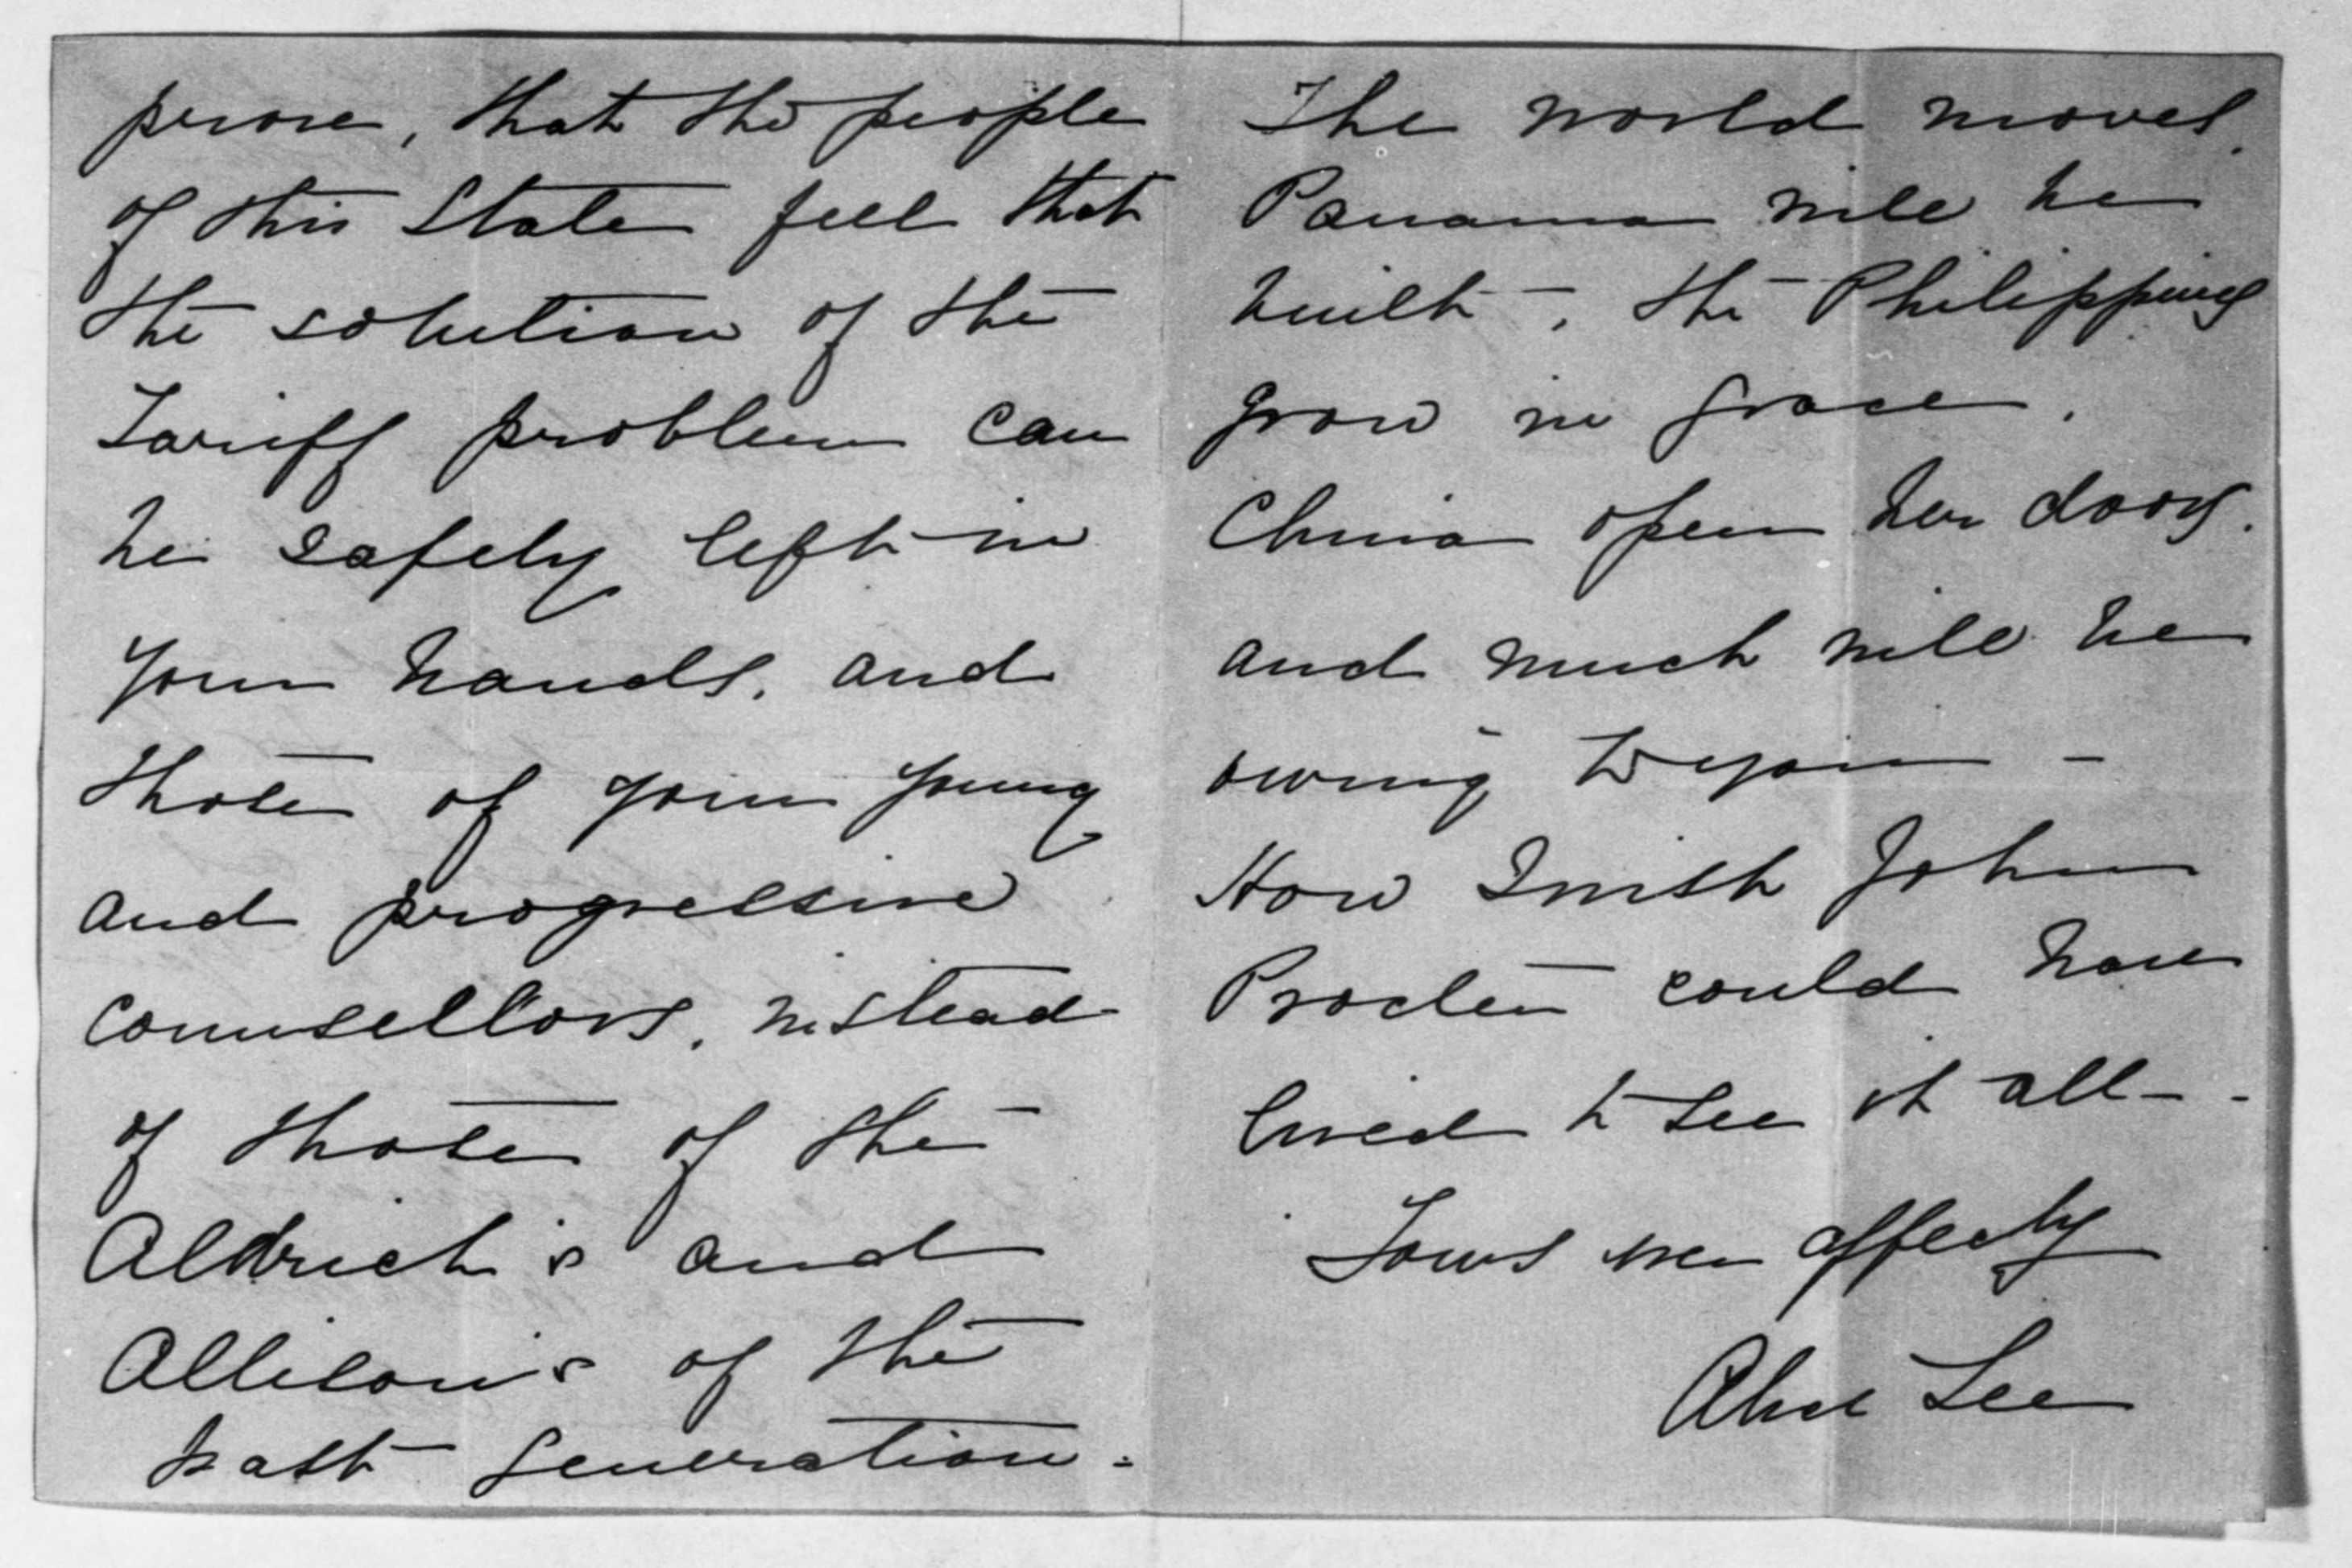 prove, that the people
of this State feel that
the solution of the
Tariff problem can
be safely left in
your hands, and
those of your young
and progressive
counsellors, instead
of those of the
Aldrich's and
Allison's of the
past generation.
The world moves.
Panama will be
built, the Philippines
grow in grace.
China open her doors.
and much will be
owing to you -
How I wish John
Procter could have
lived to see it all -
Yours ever affecly
Lee